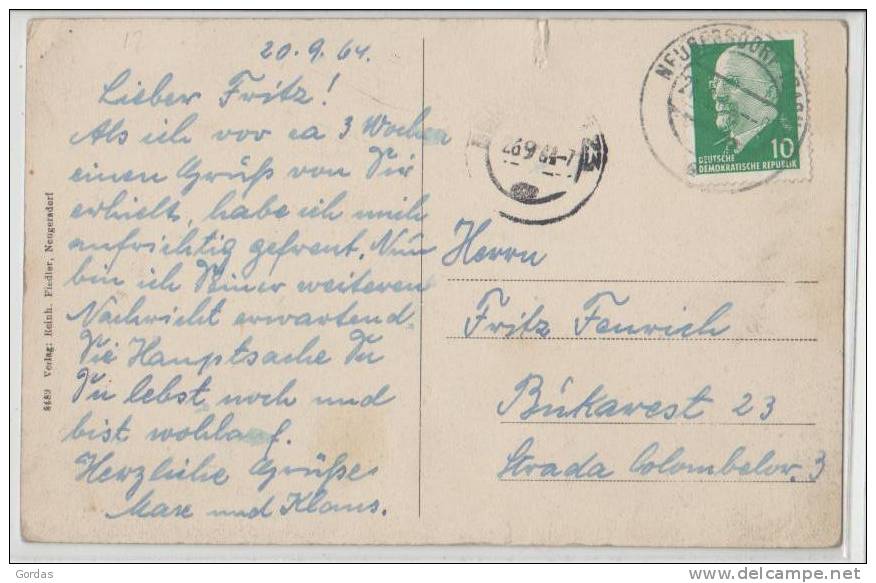 20.9.64.
Lieber Fritz!
Als ich vor ca 3 Wochen
einen Grüß von Dir
erhielt, habe ich mich
aufrichtig gefreut. Nün
bin ich Deiner weiteren
Nachricht erwartend.
Die Hauptsache Du
Du lebst noch und
bist wohlauf.
Herzliche Grüße
Max und Klaus.
8489 Verlag: Reinh. Fiedler, Neugersdorf
NEUGERSDORF
10
DEUTSCHE
DEMOKRATISCHE REPUBLIK
26 9 64-7
23
Herrn
Fritz Fenrich
Bükarest 23
Strada Colombelor. 3
Gordas
www.delcampe.net